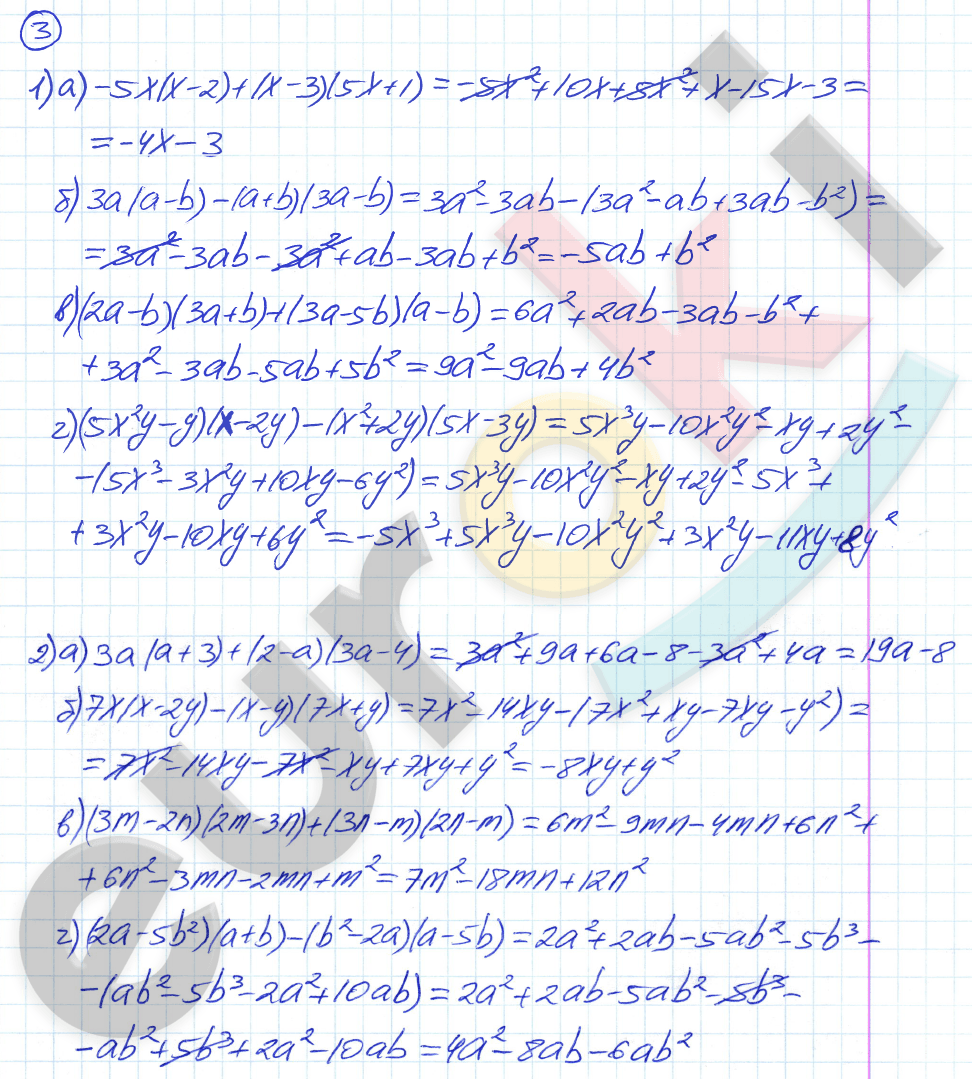 3
1) а) -5x(x-2)+(x-3)(5x+1) = -5x²+10x+5x²+x-15x-3 =
= -4x-3
б) 3a(a-b)-(a+b)(3a-b) = 3a²-3ab-(3a²-ab+3ab-b²) =
= 3a²-3ab-3a²+ab-3ab+b² = -5ab+b²
в) (2a-b)(3a+b)+(3a-5b)(a-b) = 6a²+2ab-3ab-b²+
+3a²-3ab-5ab+5b² = 9a²-9ab+4b²
г) (5x²y-y)(x-2y)-(x²+2y)(5x-3y) = 5x³y-10x²y²-xy+2y²-
-(5x³-3x²y+10xy-6y²) = 5x³y-10x²y²-xy+2y²-5x³+
+3x²y-10xy+6y² = -5x³+5x³y-10x²y²+3x²y-11xy+8y²
2) а) 3a(a+3)+(2-a)(3a-4) = 3a²+9a+6a-8-3a²+4a = 19a-8
б) 7x(x-2y)-(x-y)(7x+y) = 7x²-14xy-(7x²+xy-7xy-y²) =
= 7x²-14xy-7x²-xy+7xy+y² = -8xy+y²
в) (3m-2n)(2m-3n)+(3n-m)(2n-m) = 6m²-9mn-4mn+6n²+
+6n²-3mn-2mn+m² = 7m²-18mn+12n²
г) (2a-5b²)(a+b)-(b²-2a)(a-5b) = 2a²+2ab-5ab²-5b³-
-(ab²-5b³-2a²+10ab) = 2a²+2ab-5ab²-5b³-
-ab²+5b³+2a²-10ab = 4a²-8ab-6ab²
euroki